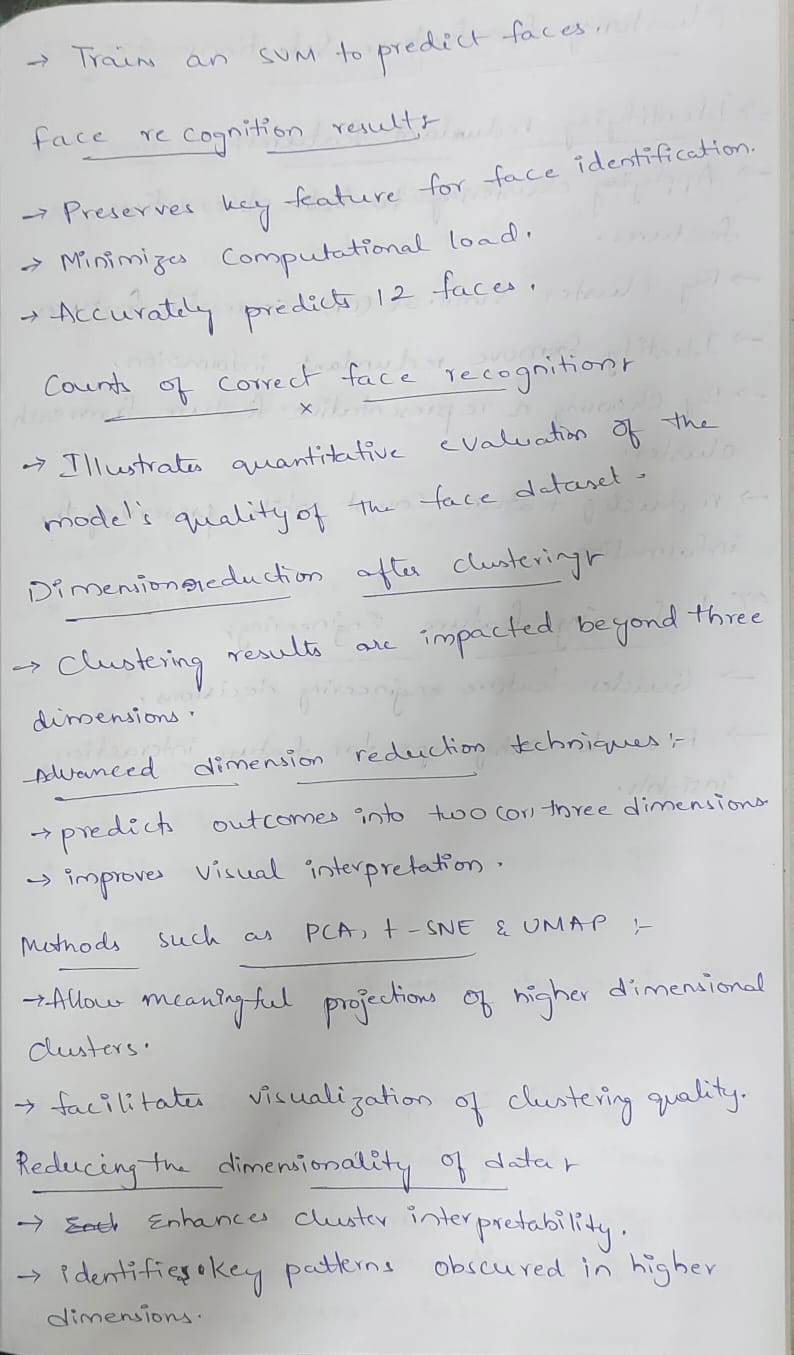 → Train an SVM to predict faces.
face recognition results:-
→ Preserves key feature for face identification.
→ Minimizes Computational load.
→ Accurately predicts 12 faces.
Counts of correct face recognition:-
x
→ Illustrates quantitative evaluation of the
model's quality of the face dataset.
Dimension reduction after clustering:-
→ Clustering results are impacted beyond three
dimensions.
Advanced dimension reduction techniques:-
→ predicts outcomes into two (or) three dimensions
→ improves visual interpretation.
Methods such as PCA, t-SNE & UMAP :-
→ Allow meaningful projections of higher dimensional
clusters.
→ facilitates visualization of clustering quality.
Reducing the dimensionality of data:-
→ Enhances cluster interpretability.
→ identifies key patterns obscured in higher
dimensions.